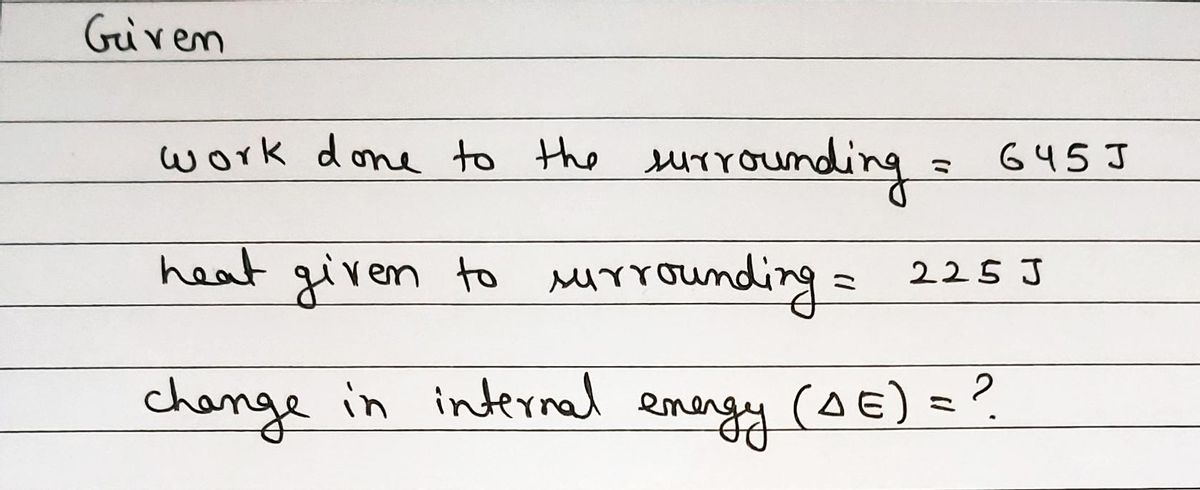 Given
work done to the surrounding = 645 J
heat given to surrounding = 225 J
change in internal energy (ΔE) = ?